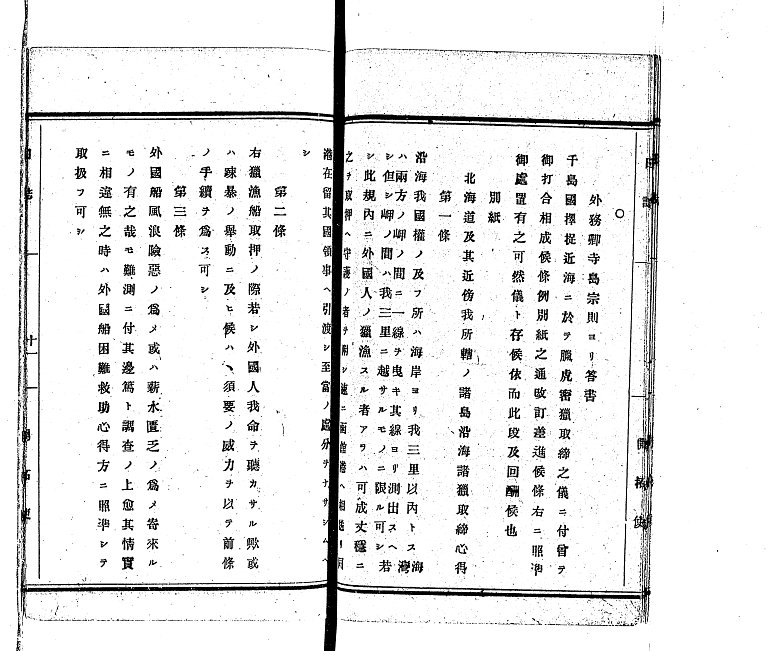 ○
外務卿寺島宗則ヨリ答書
千島國擇捉近海ニ於テ臘虎密獵取締之儀ニ付曾テ
御打合相成候條例別紙之通改訂差進候條右ニ照準
御處置有之可然儀ト存候依而此段及回酬候也
別紙
北海道及其近傍我所轄ノ諸島沿海諸獵取締心得
第一條
沿海我國權ノ及フ所ハ海岸ヨリ我三里以內トス海灣
ハ兩方ノ岬ノ間ニ一線ヲ曳キ其線ヨリ測出スヘ
シ但シ岬ノ間ハ我三里ニ越サルモノニ限ル可シ若
シ此規內ニ外國人ノ獵漁スル者アラハ可成丈穩ニ
之ヲ取押ヘ守護ノ者ヲ附シ速ニ函館港ヘ相送リ同
港在留其國領事ヘ引渡シ至當ノ處分ヲナサシムヘ
シ
第二條
右獵漁船取押ノ際若シ外國人我命ヲ聽カサル歟或
ハ疎暴ノ舉動ニ及ヒ候ハヽ須要ノ威力ヲ以テ前條
ノ手續ヲ爲ス可シ
第三條
外國船風浪險惡ノ爲メ或ハ薪水匱乏ノ爲メ寄來ル
モノ有之哉モ難測ニ付其邊篤ト調査ノ上愈其情實
ニ相違無之時ハ外國船困難救助心得方ニ照準シテ
取扱フ可シ